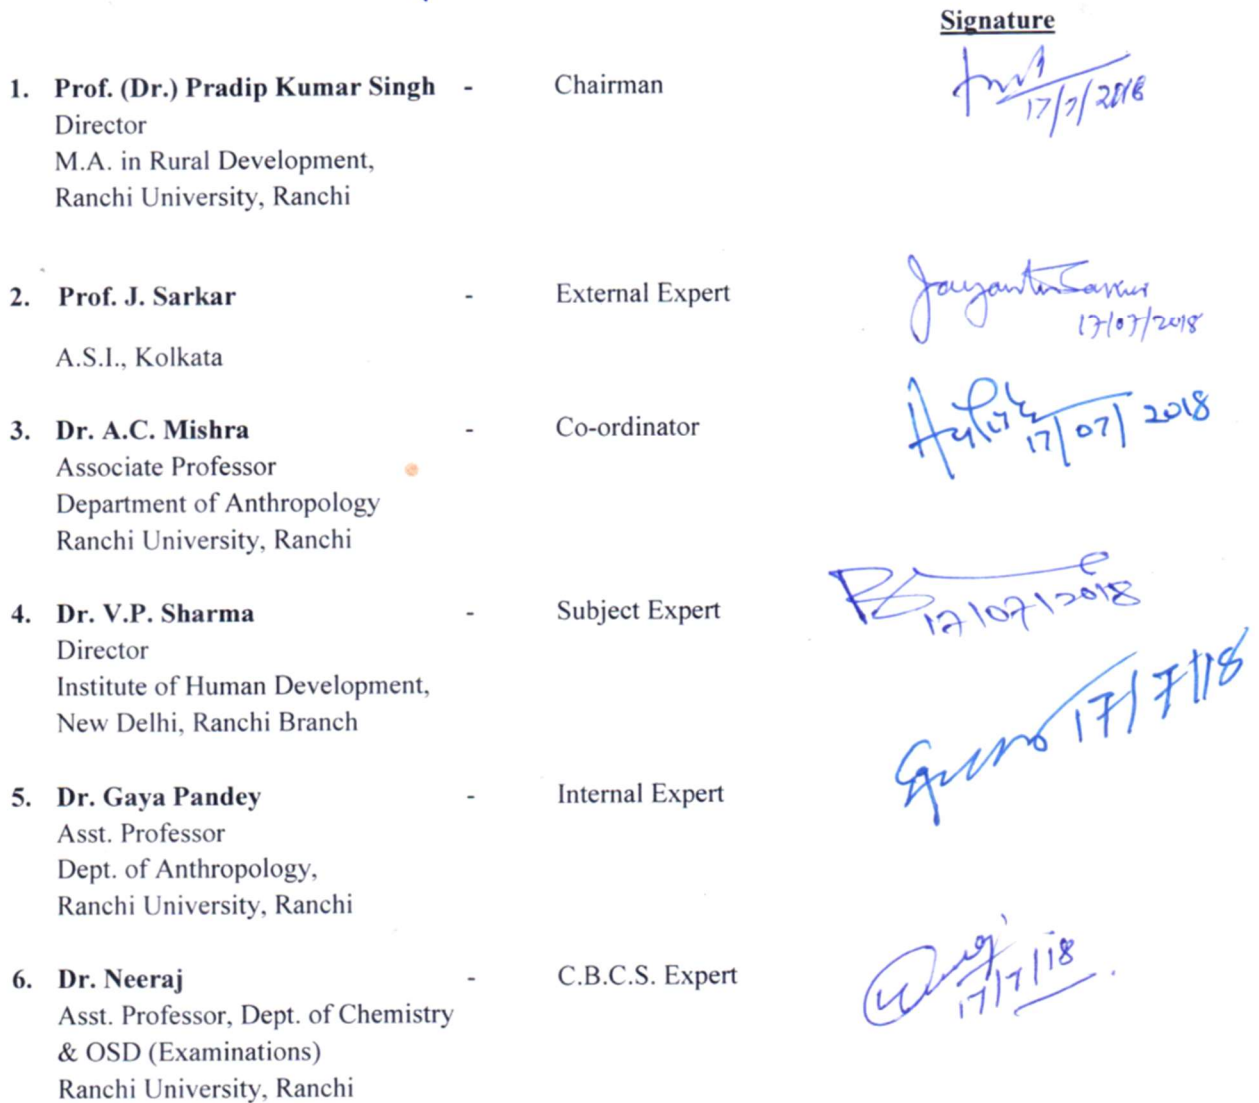 Signature
1. Prof. (Dr.) Pradip Kumar Singh - Chairman
17/7/2018
Director
M.A. in Rural Development,
Ranchi University, Ranchi
2. Prof. J. Sarkar - External Expert
Jayanta Sarkar
17/07/2018
A.S.I., Kolkata
3. Dr. A.C. Mishra - Co-ordinator
17/07/2018
Associate Professor
Department of Anthropology
Ranchi University, Ranchi
4. Dr. V.P. Sharma - Subject Expert
17/07/2018
Director
Institute of Human Development,
New Delhi, Ranchi Branch
17/7/18
5. Dr. Gaya Pandey - Internal Expert
Asst. Professor
Dept. of Anthropology,
Ranchi University, Ranchi
6. Dr. Neeraj - C.B.C.S. Expert
17/7/18
Asst. Professor, Dept. of Chemistry
& OSD (Examinations)
Ranchi University, Ranchi